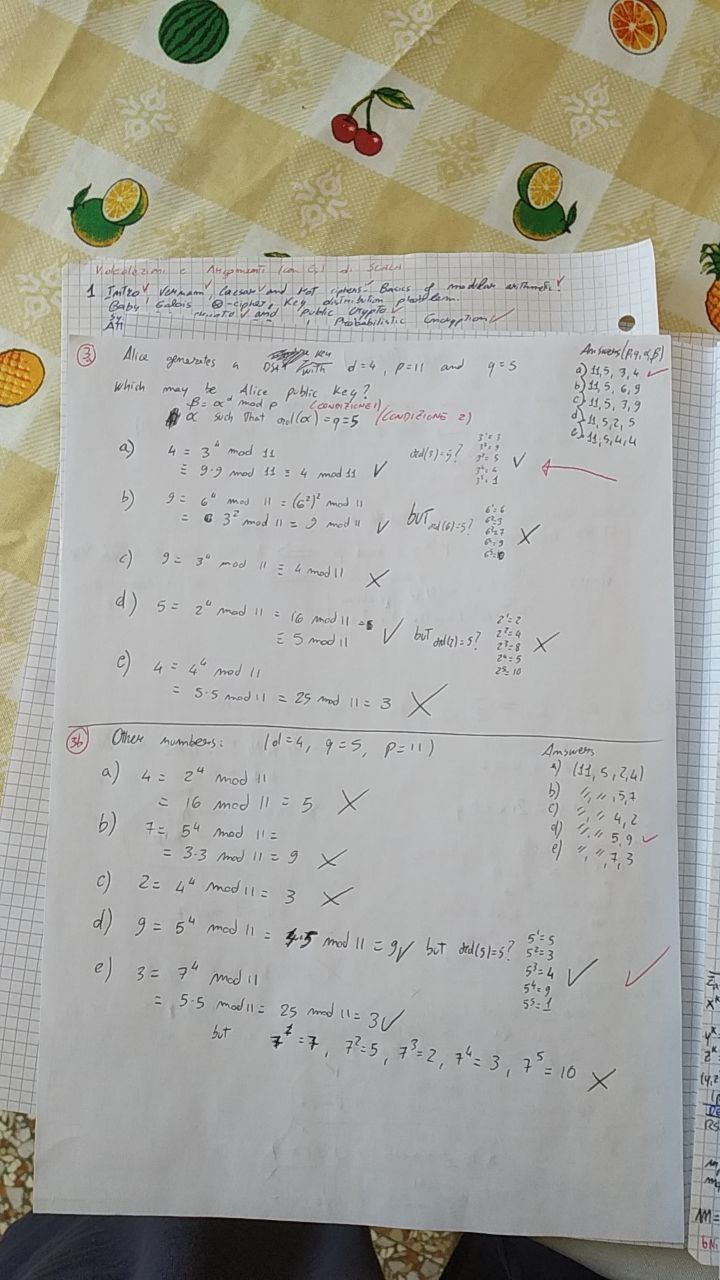 Videolezioni e Argomenti (con Es) di
1 Intro✓ Vernam✓ Caesar✓ and Rot ciphers✓ Basics of modular arithmetic✓
Baby Galois ⊕-cipher, Key distribution problem.
Sy and Public Crypto✓
Probabilistic Encryption✓
3 Alice generates a DSA key with d=4, p=11 and q=5
Which may be Alice public key?
β = α^d mod p (CONDIZIONE 1)
α such that ord(α)=q=5 (CONDIZIONE 2)
Answers (p,q,α,β)
a) 11,5,3,4 ✓
b) 11,5,6,9
c) 11,5,3,9
d) 11,5,2,5
e) 11,5,4,4
a) 4 = 3^4 mod 11
≡ 9·9 mod 11 ≡ 4 mod 11 ✓
ord(3)=5?
3^1=3
3^2=9
3^3=5
3^4=4
3^5=1
✓
b) 9 = 6^4 mod 11 = (6^2)^2 mod 11
= 3^2 mod 11 = 9 mod 11 ✓
but ord(6)=5?
6^1=6
6^2=3
6^3=7
6^4=9
6^5=10
X
c) 9 = 3^4 mod 11 ≡ 4 mod 11 X
d) 5 = 2^4 mod 11 = 16 mod 11 =
≡ 5 mod 11 ✓
but ord(2)=5?
2^1=2
2^2=4
2^3=8
2^4=5
2^5=10
X
e) 4 = 4^4 mod 11
= 5·5 mod 11 = 25 mod 11 = 3 X
3b Other numbers: (d=4, q=5, p=11)
Answers
a) (11,5,2,4)
b) ",",5,7
c) ",",4,2
d) ",",5,9 ✓
e) ",",7,3
a) 4 = 2^4 mod 11
= 16 mod 11 = 5 X
b) 7 = 5^4 mod 11 =
= 3·3 mod 11 = 9 X
c) 2 = 4^4 mod 11 = 3 X
d) 9 = 5^4 mod 11 = mod 11 = 9 ✓ but ord(5)=5?
5^1=5
5^2=3
5^3=4
5^4=9
5^5=1
✓
e) 3 = 7^4 mod 11
= 5·5 mod 11 = 25 mod 11 = 3 ✓
but 7^1=7, 7^2=5, 7^3=2, 7^4=3, 7^5=10 X